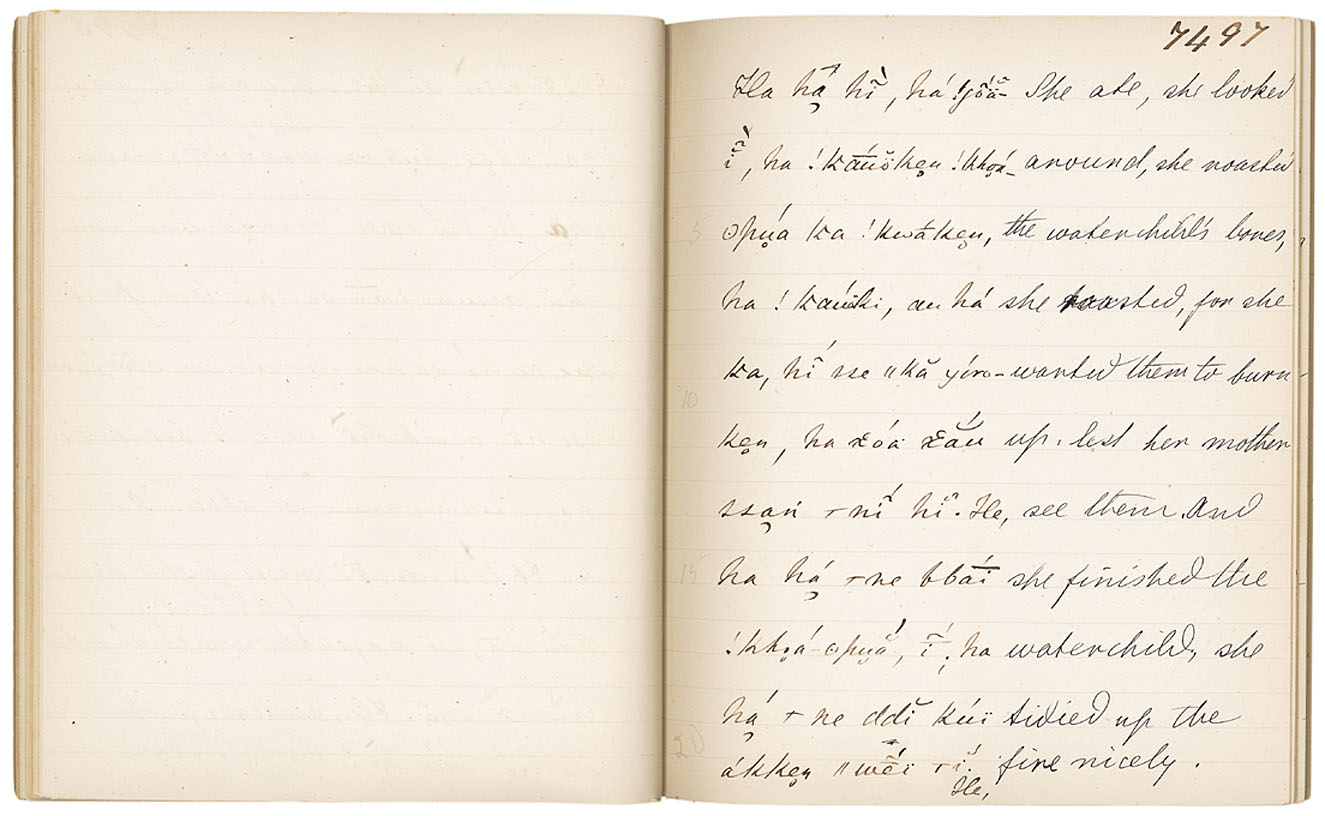 7497
Ha hą́ hĩ, há !gõ̃ä- She ate, she looked
ĩ, ha !kā́uökęn !khọá- around, she roasted
5 ʘpụ́a ka !kwā̆kęn, the waterchild's bones,
ha ! káúöki, au há she roasted, for she
ka, hĩ́ sse ǁkă yíro- wanted them to burn-
10
kęn, ha x́óä x́ắu up. lest her mother
ssąń -ı-nĩ́ hĩ. He, see them. And
15 ha hą́ -ı-ne bbāí she finished the
!khọá-ʘpụắ, ĩ́; ha waterchild, she
hą́ -ı- ne ddĭ kúï tidied up the
20 ákkęn ǁwḗï -ı-ĭ́. fire nicely.
He,